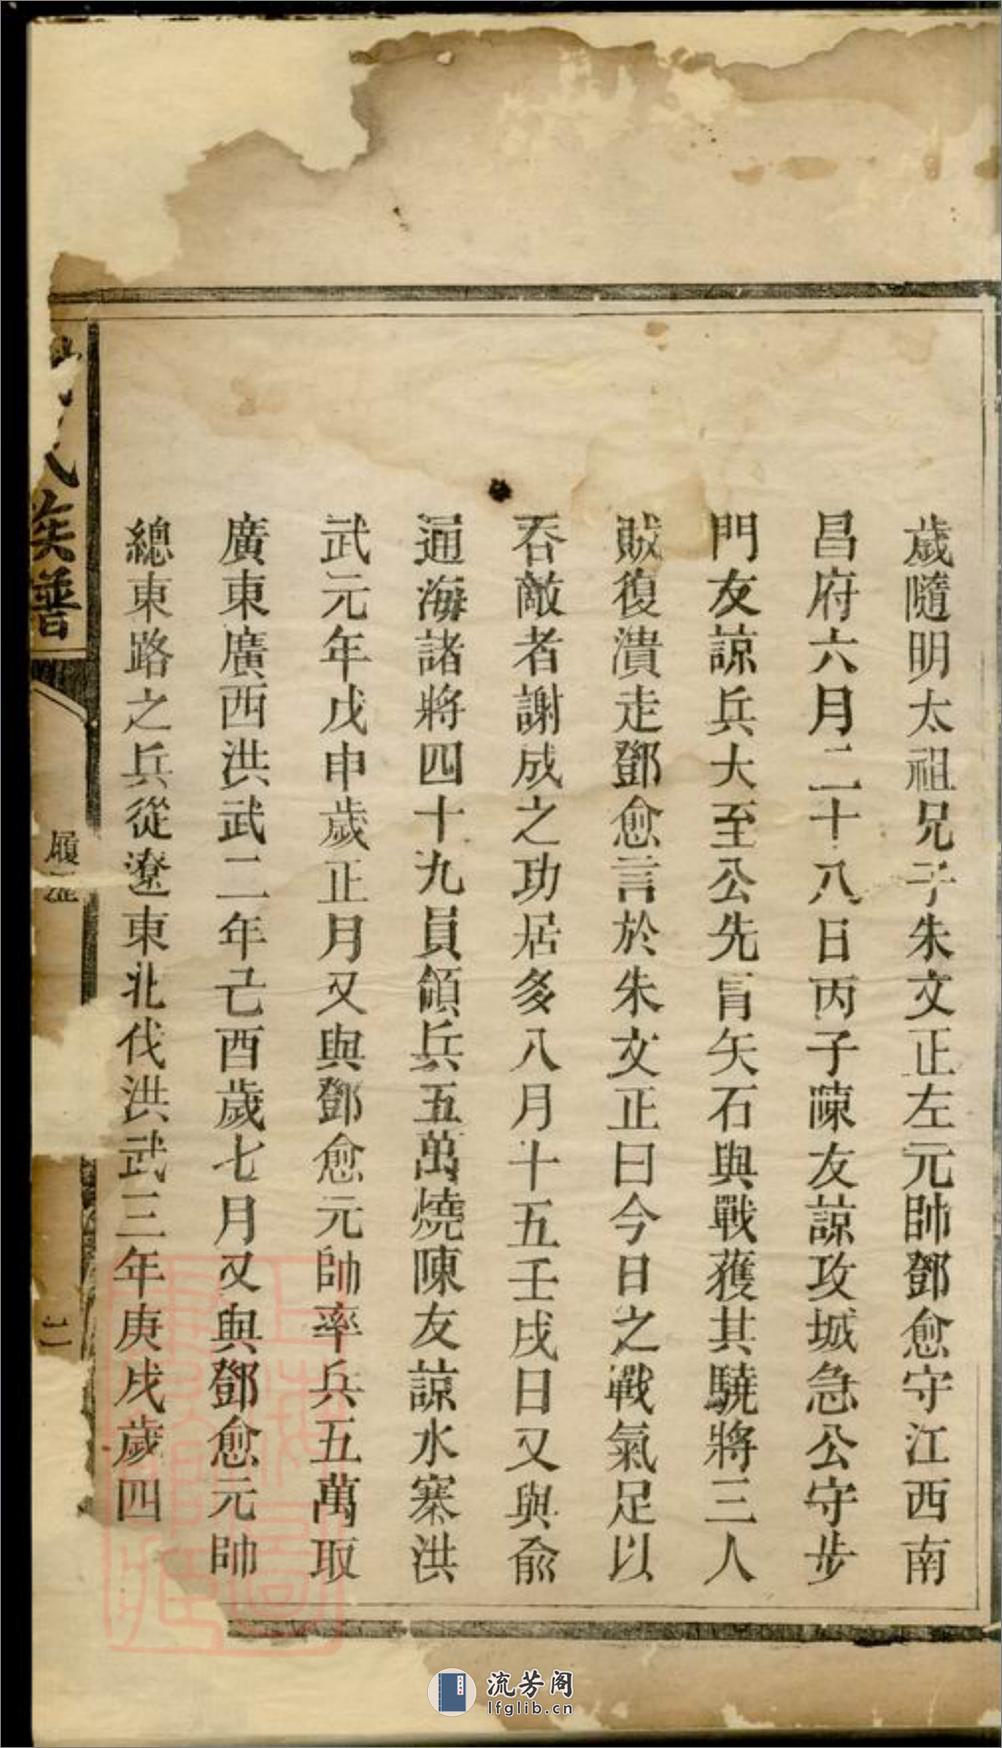 歲隨明太祖兄子朱文正左元帥鄧愈守江西南
昌府六月二十八日丙子陳友諒攻城急公守步
門友諒兵大至公先冐矢石與戰獲其驍將三人
賊復潰走鄧愈言於朱文正曰今日之戰氣足以
吞敵者謝成之功居多八月十五壬戌日又與俞
通海諸將四十九員領兵五萬燒陳友諒水寨洪
武元年戊申歲正月又與鄧愈元帥率兵五萬取
廣東廣西洪武二年己酉歲七月又與鄧愈元帥
總東路之兵從遼東北伐洪武三年庚戌歲四
氏族譜
履歷
二
流芳阁
lfglib.cn